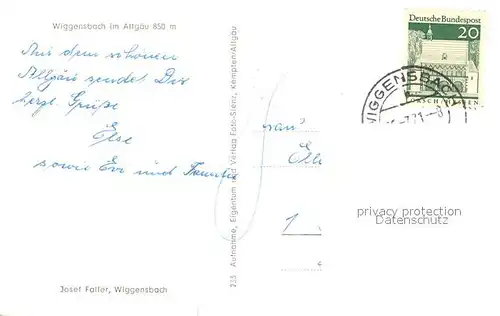 Wiggensbach im Allgäu 850 m
Aus dem schönen
Allgäu sendet Dir
herzl. Grüße
Else
sowie Evi und Familie
Josef Faller, Wiggensbach
235 Aufnahme, Eigentum und Verlag Foto-Sienz, Kempten/Allgäu
Deutsche Bundespost
20
LORSCH/HESSEN
WIGGENSBACH
71-8
1
privacy protection
Datenschutz